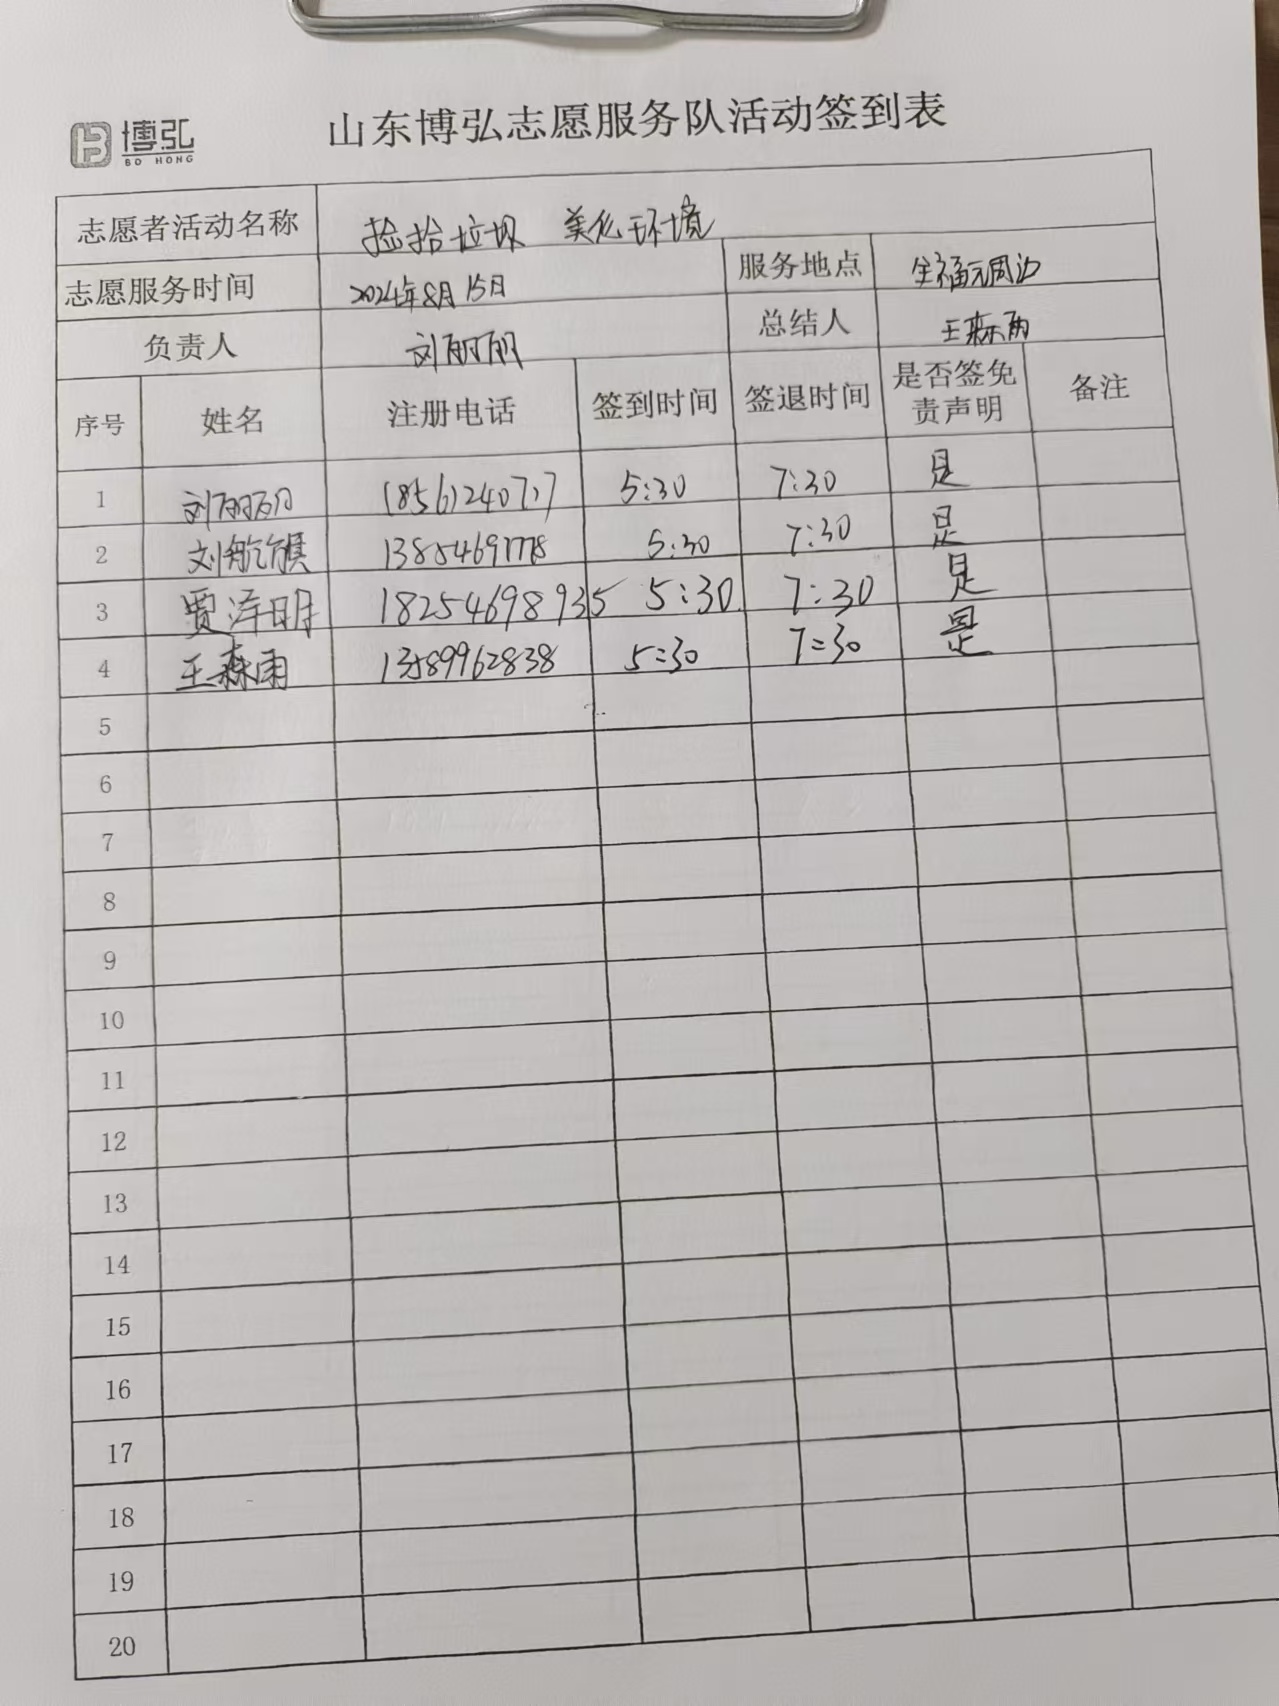 博弘
BO HONG
山东博弘志愿服务队活动签到表
志愿者活动名称 捡拾垃圾 美化环境
志愿服务时间 2024年8月15日 服务地点 全福元周边
负责人 刘丽丽 总结人 王森雨
序号 姓名 注册电话 签到时间 签退时间 是否签免责声明 备注
1 刘丽丽 5:30 7:30 是
2 刘航旗 5:30 7:30 是
3 贾泽明 18254698935 5:30 7:30 是
4 王森雨 13589962838 5:30 7:30 是
5
6
7
8
9
10
11
12
13
14
15
16
17
18
19
20